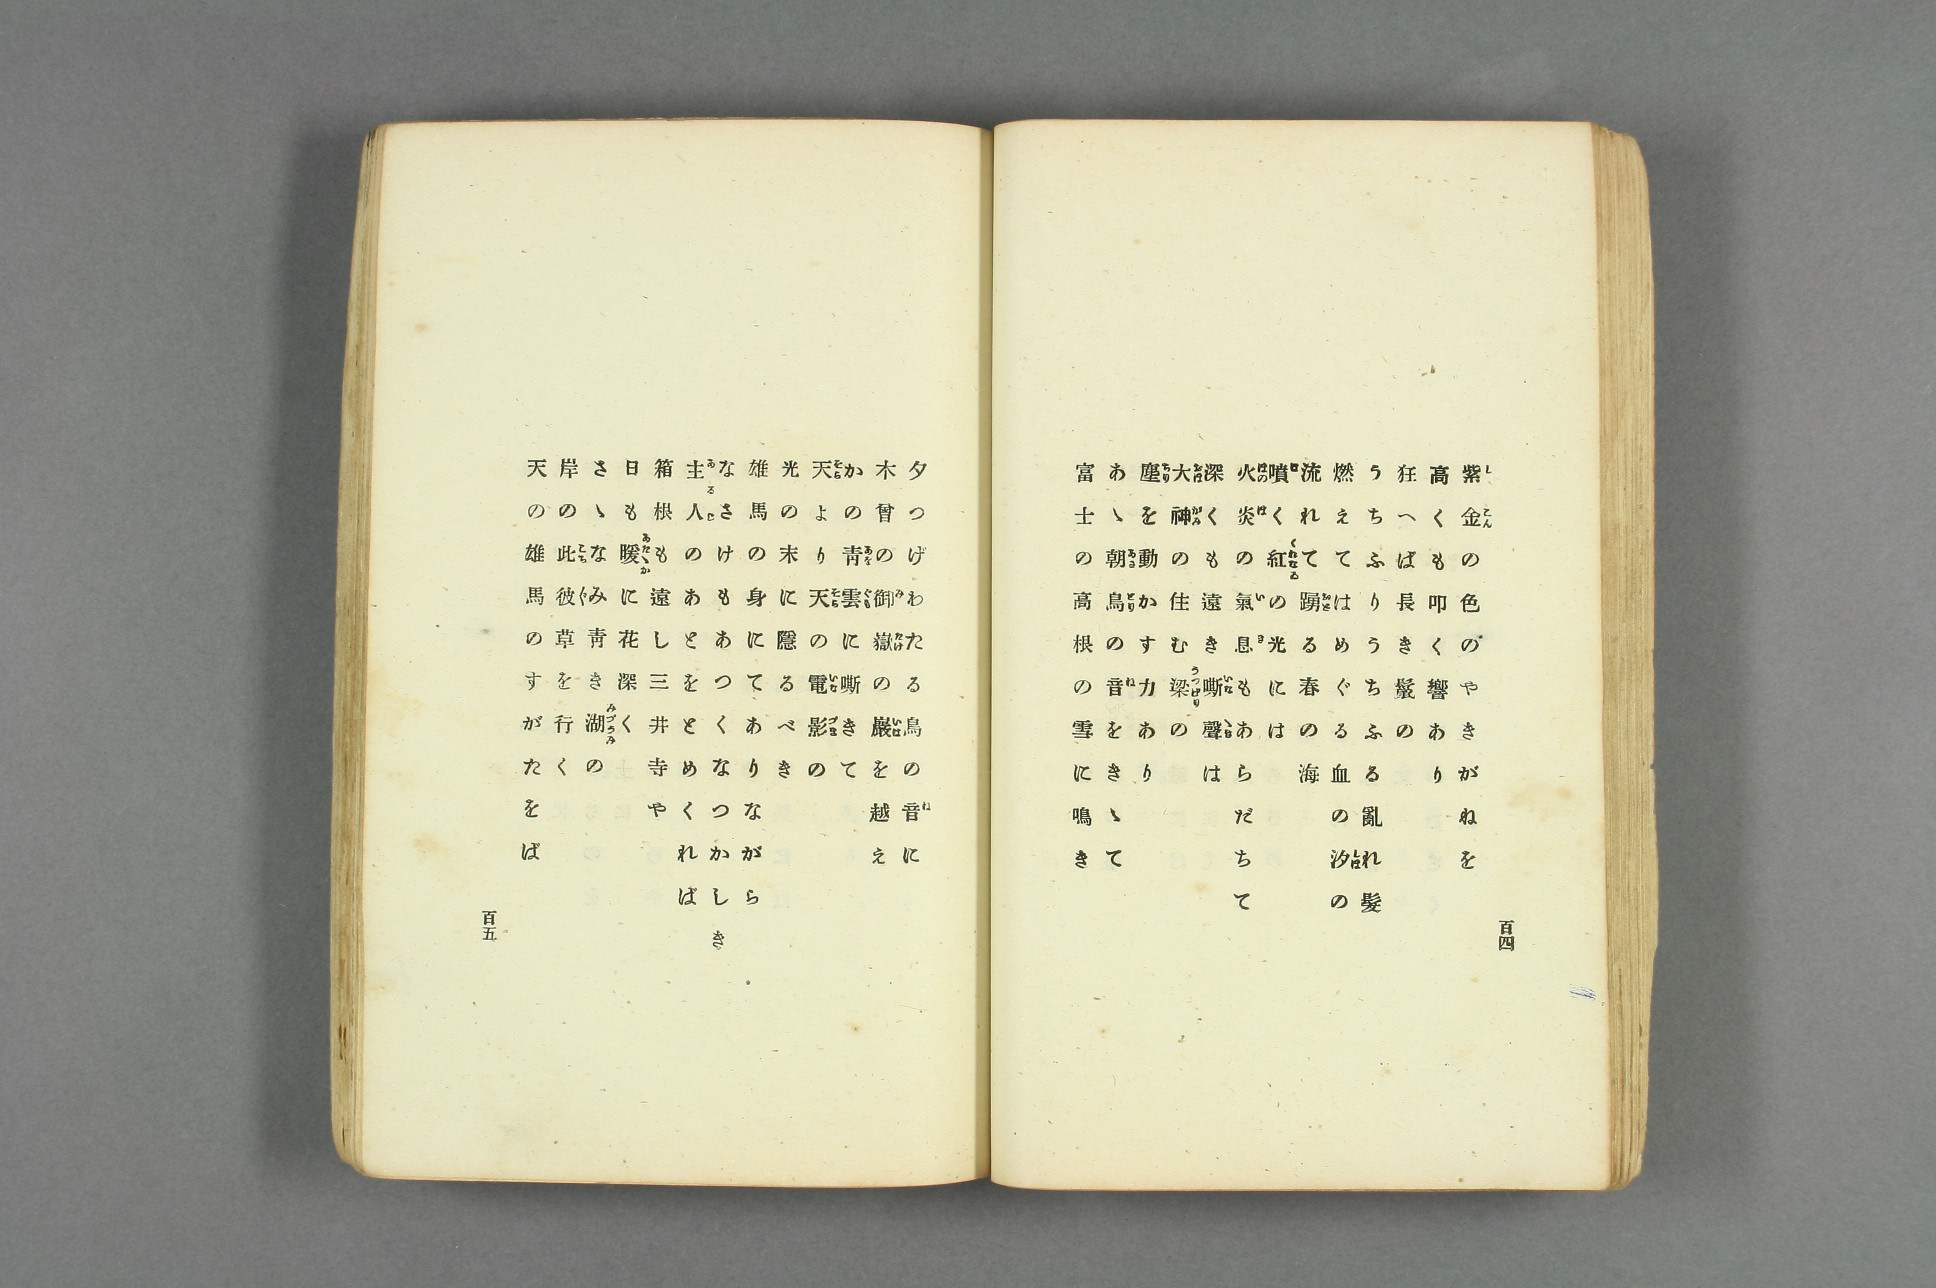 紫金の色のやきがねを
高くも叩く響あり
狂へば長き鬣の
うちふりうちふる亂れ髮
燃えてはめぐる血の汐の
流れて踴る春の海
噴く紅の光には
火炎の氣息もあらだちて
深くも遠き嘶聲は
大神の住む梁の
塵を動かす力あり
あゝ朝鳥の音をきゝて
富士の高根の雪に鳴き
百四
夕つげわたる鳥の音に
木曾の御嶽の巖を越え
かの青雲に嘶きて
天より天の電影の
光の末に隱るべき
雄馬の身にてありながら
なさけもあつくなつかしき
主人のあとをとめくれば
箱根も遠し三井寺や
日も暖に花深く
さゝなみ青き湖の
岸の此彼草を行く
天の雄馬のすがたをば
百五